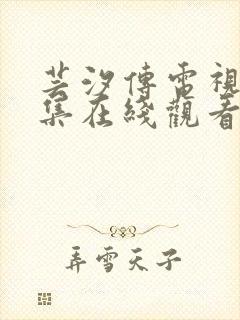 芸汐傳電視
集在綫觀看
弄雪天子